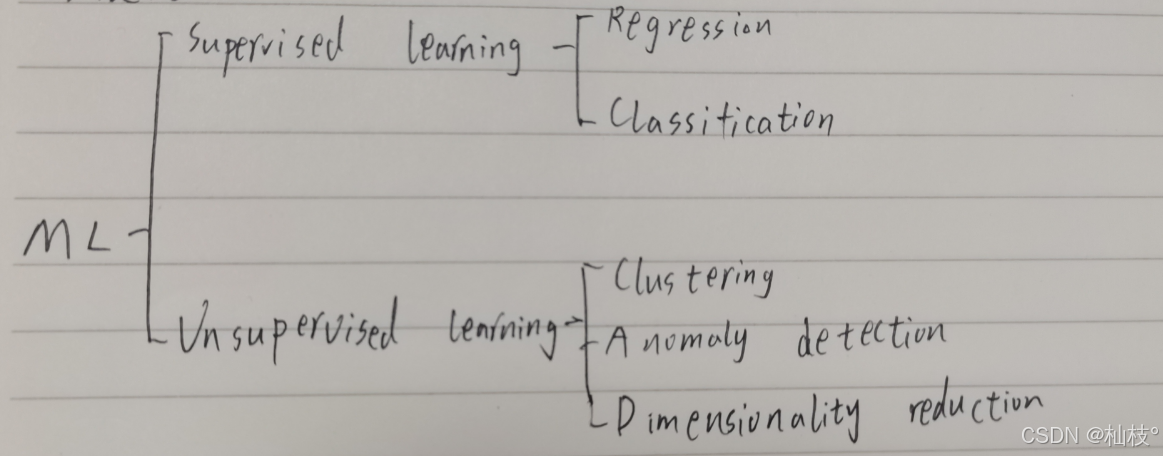 Supervised learning
Regression
Classification
ML
Unsupervised learning
Clustering
Anomaly detection
Dimensionality reduction
CSDN @杣枝°